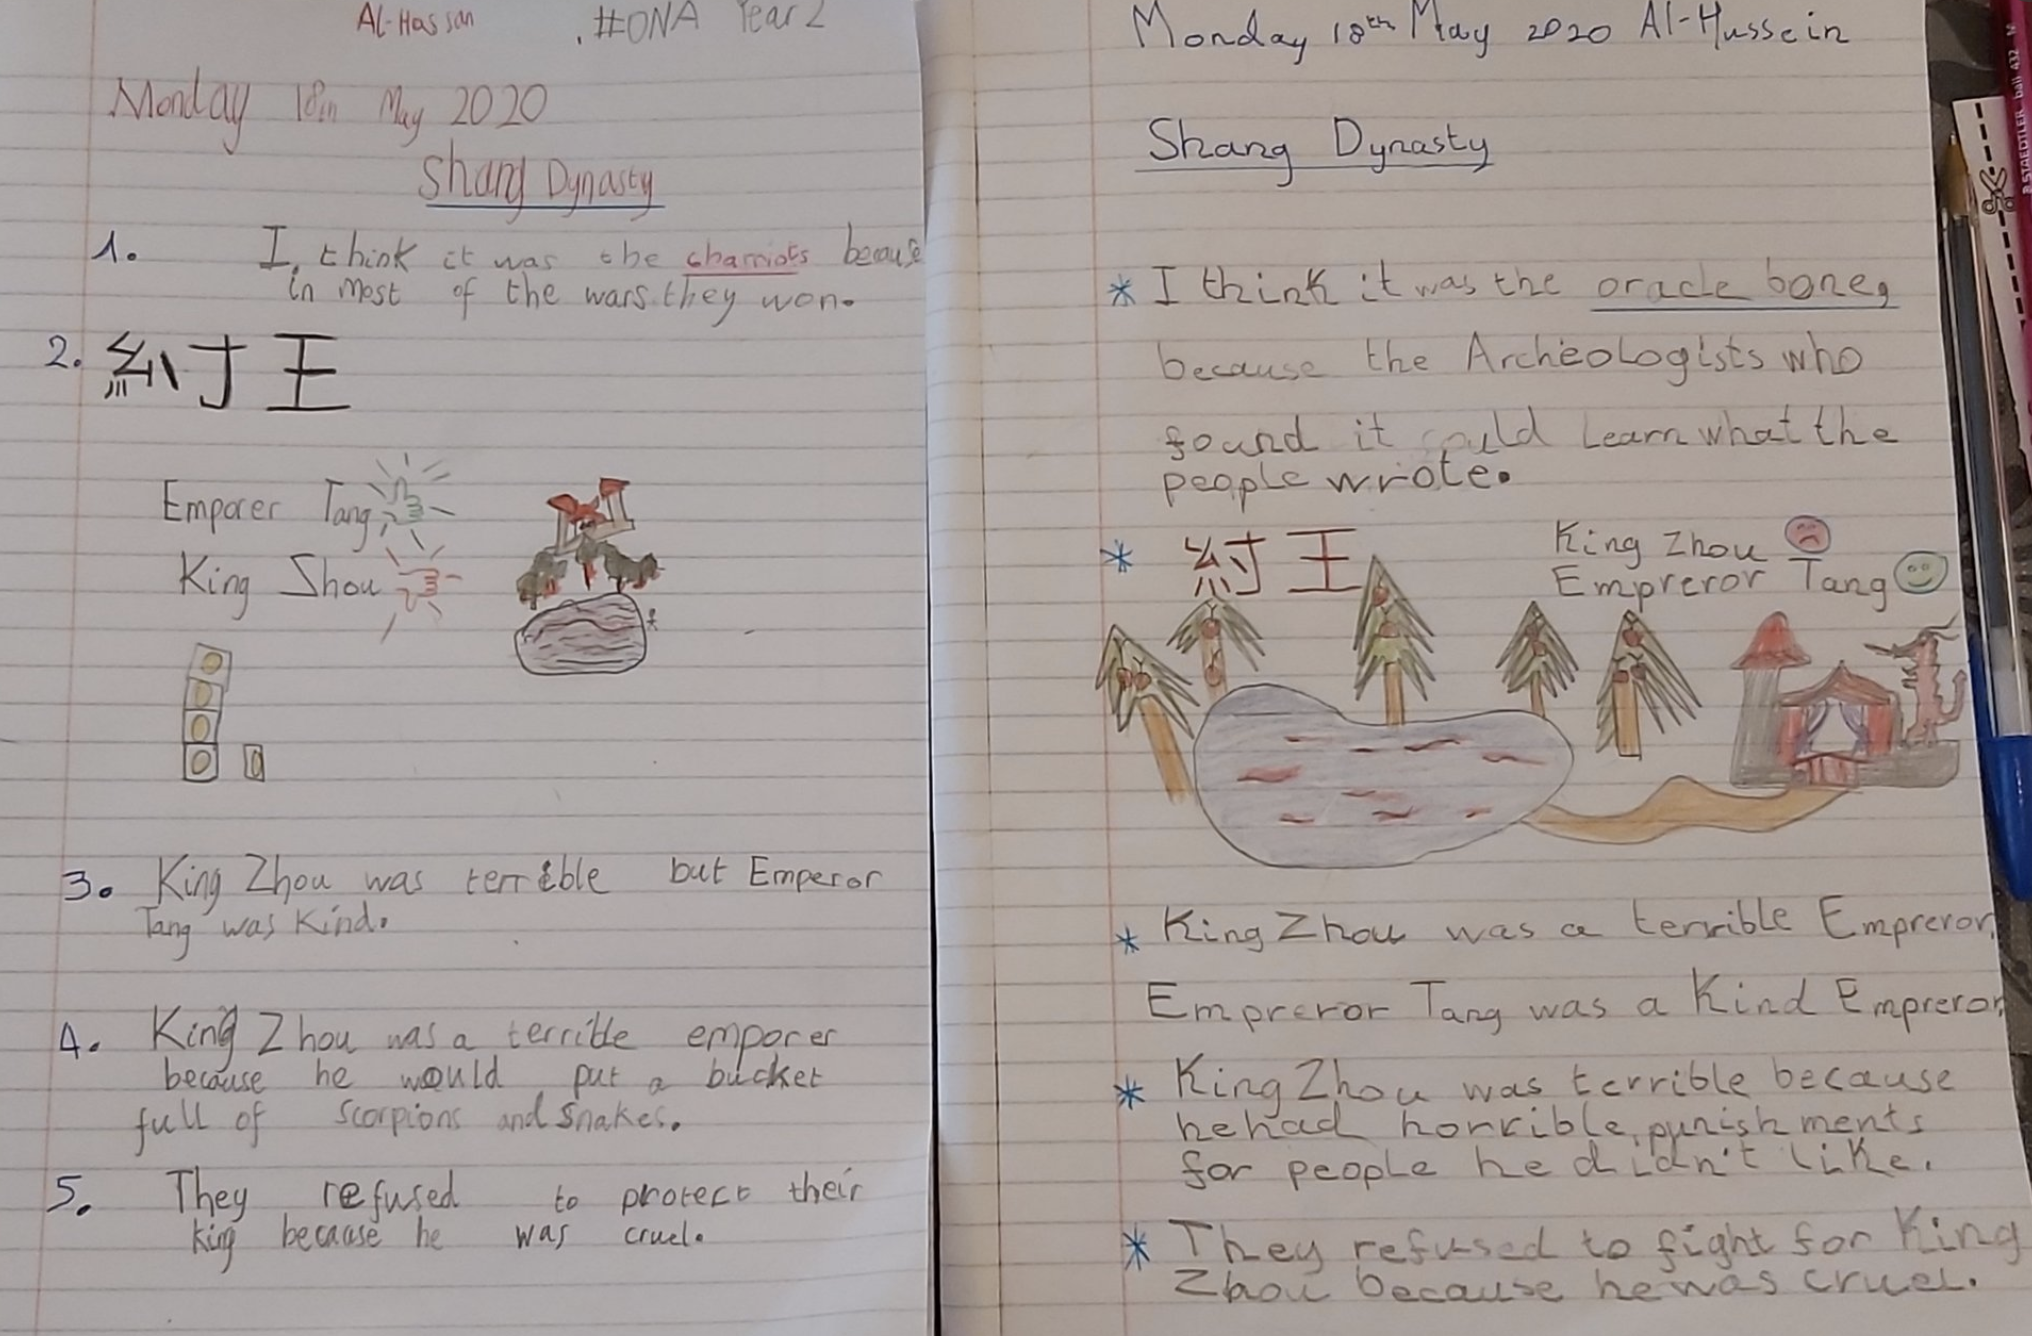 Al-Hassan
.#ONA Year 2
Monday 18th May 2020
Shang Dynasty
1. I think it was the charriots because
in most of the wars they won.
2. 紂王
Emporer Tang
King Shou
3. King Zhou was terrible but Emperor
Tang was Kind.
4. King Zhou was a terrible emporer
because he would put a bucket
full of scorpions and snakes.
5. They refused to protect their
king because he was cruel.
Monday 18th May 2020 Al-Hussein
Shang Dynasty
* I think it was the oracle bone,
because the Archeologists who
found it could Learn what the
people wrote.
* 紂王
King Zhou
Empreror Tang
* King Zhou was a terrible Empreror,
Empreror Tang was a Kind Empreror,
* King Zhou was terrible because
he had horrible punishments
for people he didn't like.
* They refused to fight for King
Zhou because he was cruel.
STAEDTLER ball 432 M